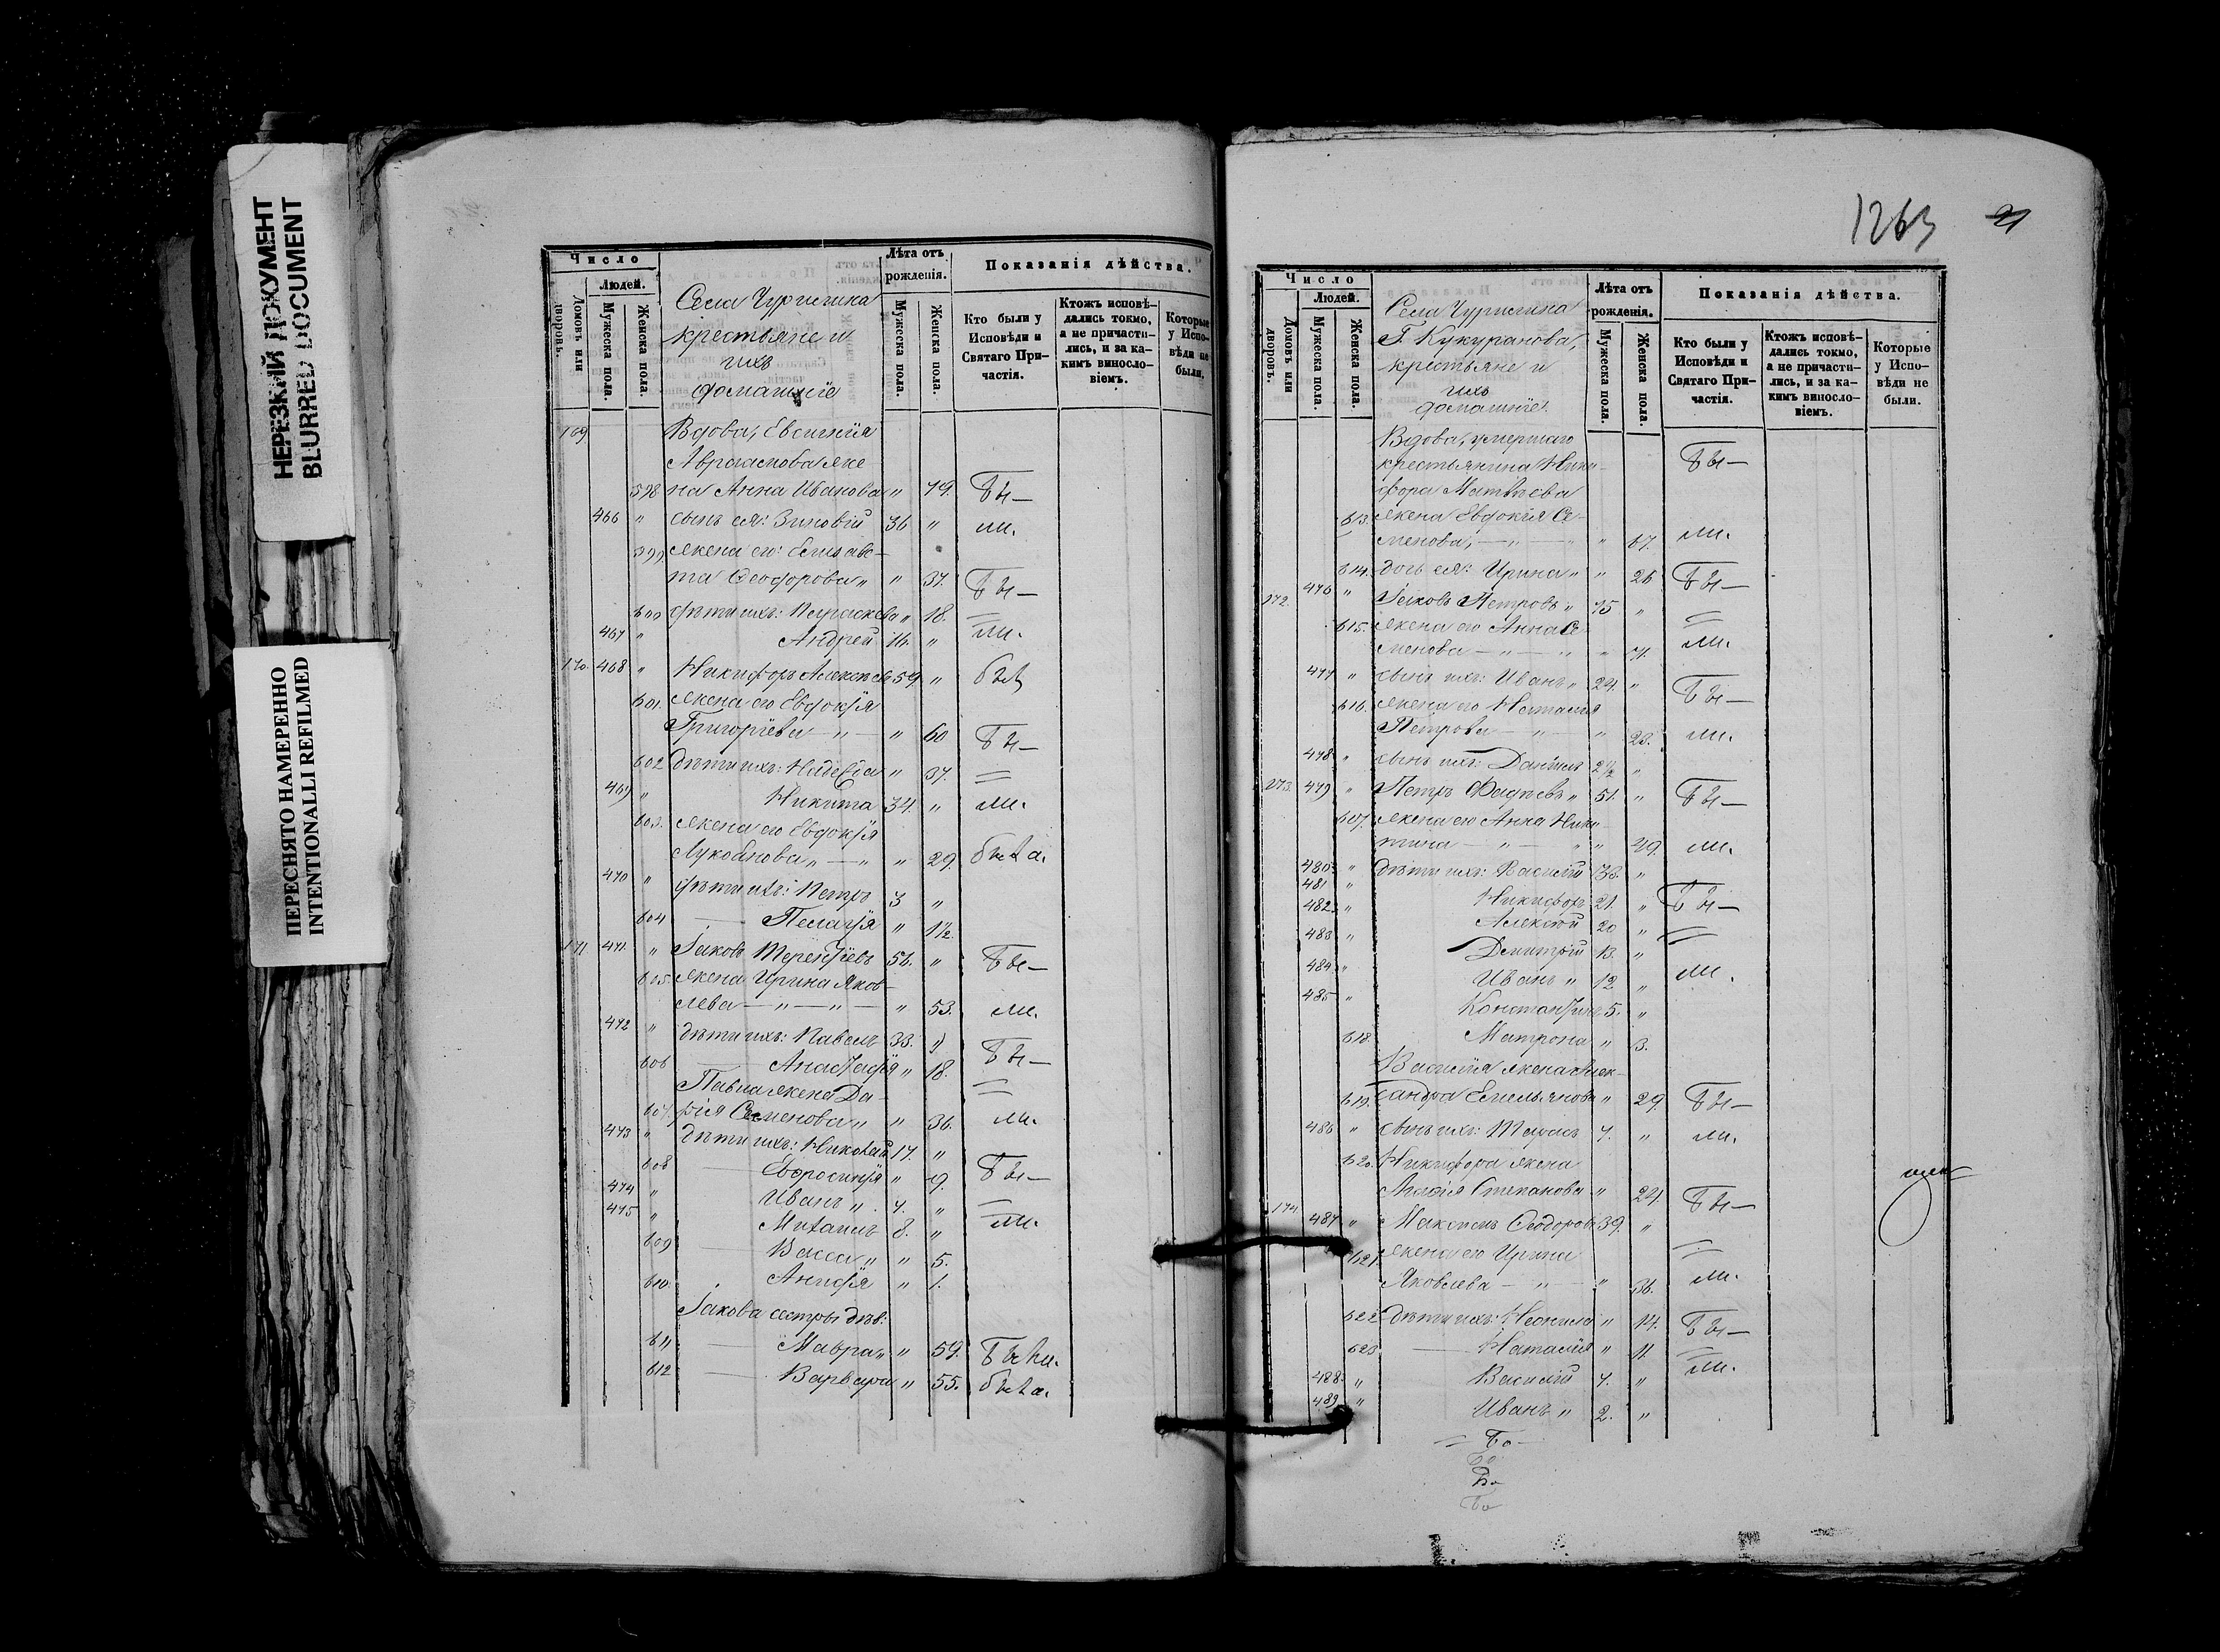 НЕРЕЗКИЙ ДОКУМЕНТ
BLURRED DOCUMENT
ПЕРЕСНЯТО НАМЕРЕННО
INTENTIONALLI REFILMED
Число
Людей.
Домовъ или дворовъ.
Мужеска пола.
Женска пола.
Села
крестьяне и
ихъ
домашніе
Лѣта отъ рожденія.
Мужеска пола.
Женска пола.
Показанія дѣйства.
Кто были у Исповѣди и Святаго Причастія.
Ктожъ исповѣдались токмо, а не причастились, и за какимъ винословіемъ.
Которые у Исповѣди не были.
169 Вдова, Евсигнія
жe
598 на Анна Иванова " 79. Бы—
466 " сынъ ея: Зиновій 36 " ли.
599 жена его: Елисаве-
та Ѳеодорова " " 37. Бы—
600 дѣти ихъ: Параскева " 18.
467 " Андрей 16. " ли.
170. 468 " Никифоръ Алексѣевъ 59. " былъ
601. жена его Евдокія
Григоріева — " — " 60 Бы—
602 дѣти ихъ: " 37.
469 " Никита 34. " ли.
603. жена его Евдокія
Лукоянова " — " " 29. была.
470 " дѣти ихъ: Петръ 3 "
604 Пелагія " 1½.
171. 471. " Іаковъ Терентіевъ 56. " Бы—
605. жена Ирина Яков-
лева — " — " — " 53. ли.
472 " дѣти ихъ: Павелъ 33. " Бы—
606 Анастасія " 18.
Павла жена Да-
607. рія Семенова " " 36. ли.
473 " дѣти ихъ: Николай 17. "
608 Евфросинія " 9. Бы—
474 " Иванъ " 7. "
475 " Михаилъ 8. " ли.
609 Васса " " 5.
610. " 1.
Іакова сестры дѣв:
611 Мавра " " 59. Были.
612 Варвара " 55. была.
1263 21
Число
Людей.
Домовъ или дворовъ.
Мужеска пола.
Женска пола.
Села
Г. Кукуранова,
крестьяне и
ихъ
домашніе.
Лѣта отъ рожденія.
Мужеска пола.
Женска пола.
Показанія дѣйства.
Кто были у Исповѣди и Святаго Причастія.
Ктожъ исповѣдались токмо, а не причастились, и за какимъ винословіемъ.
Которые у Исповѣди не были.
Вдова, умершаго
крестьянина Ники- Бы—
фора Матвѣева
613. жена Евдокія Се-
менова, — " — " 67. ли.
614. дочь ея: Ирина " " 26 Бы—
172. 476 " Іаковъ Петровъ " 75 "
615. жена его Анна Се-
менова — " — " " 71. ли.
477 " сынъ ихъ: Иванъ " 24. " Бы—
616. жена его Наталія
Петрова — " — " 23. ли.
478. " сынъ ихъ: Даніилъ 2½ "
173. 479 " Петръ Фадѣевъ " 51. " Бы—
617. жена его Анна Ники-
тина — " — " " 49. ли.
480 " дѣти ихъ: Василій 33. "
481 " Никифоръ 21. " Бы—
482. " Алексѣй 20 "
483 " Димитрій 13. "
484 " Иванъ " 12 " ли.
485 " Константинъ 5. "
618. Матрона " 3.
Василія жена Алек-
619. сандра Емельянова " 29. Бы—
486 " сынъ ихъ: Тарасъ 7. " ли.
620. Никифора жена
Агаѳія Степанова " 24. Бы—
174. 487 " Максимъ Ѳеодоровъ 39. "
621. жена его Ирина
Яковлева — " — " 36. ли.
622 дѣти ихъ: Неонила " 14. Бы—
623. Наталія " 11. ли.
488. " Василій 7. "
489. " Иванъ " 2. "